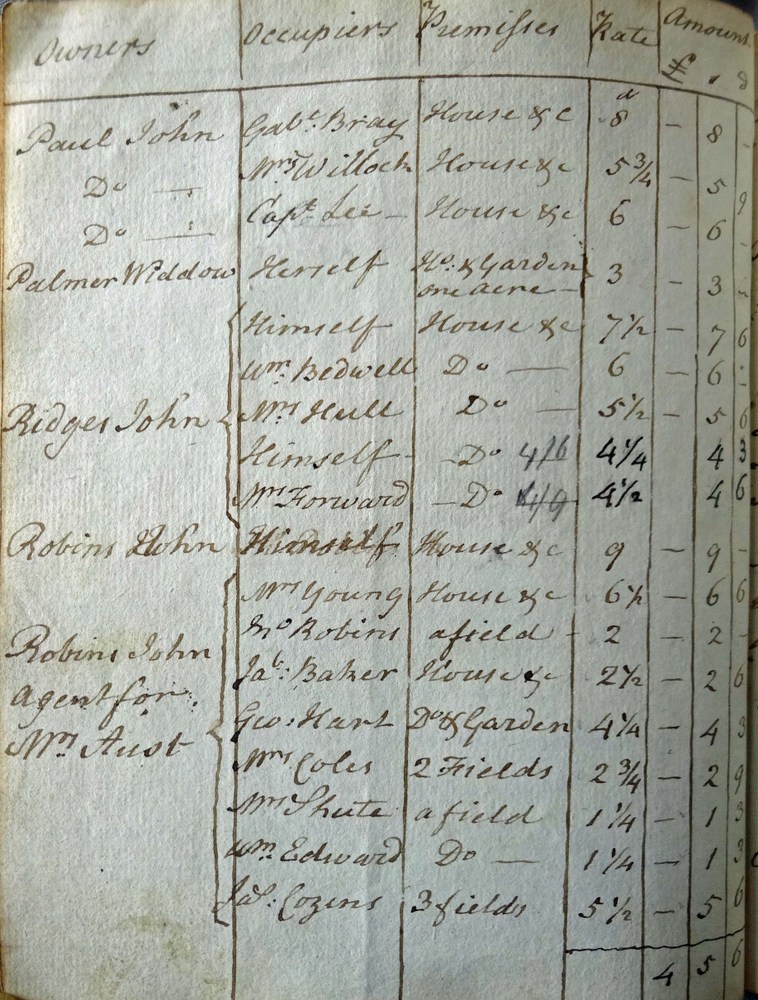 Owners Occupiers Premisses Rate Amount
£ s d
Paul John Gabt. Bray House &c 8d — 8 -
Do — Mrs Willock House &c 5 3/4 — 5 9
Do — Capt. Lee — House &c 6 — 6 -
Palmer Widdow Herself Ho: & Garden 3 — 3 -
one acre —
Himself House &c 7 1/2 — 7 6
Wm. Bedwell Do — 6 — 6 -
Ridges John Mrs Hull Do — 5 1/2 — 5 6
Himself — Do 4/6 4 1/4 4 3
Mrs Forward — Do 4/9 4 1/2 4 6
Robins John Himself House &c 9 — 9 -
Mrs Young House &c 6 1/2 — 6 6
Jno Robins a field - 2 — 2 -
Robins John
Jas: Baker House &c 2 1/2 — 2 6
agent for
Geo: Hart Do & Garden 4 1/4 — 4 3
Mrs Aust
Mrs Coles 2 Fields 2 3/4 — 2 9
Mrs Shute a field 1 1/4 — 1 3
Wm. Edward Do — 1 1/4 — 1 3
Jas: Cozens 3 fields 5 1/2 — 5 6
4 5 6